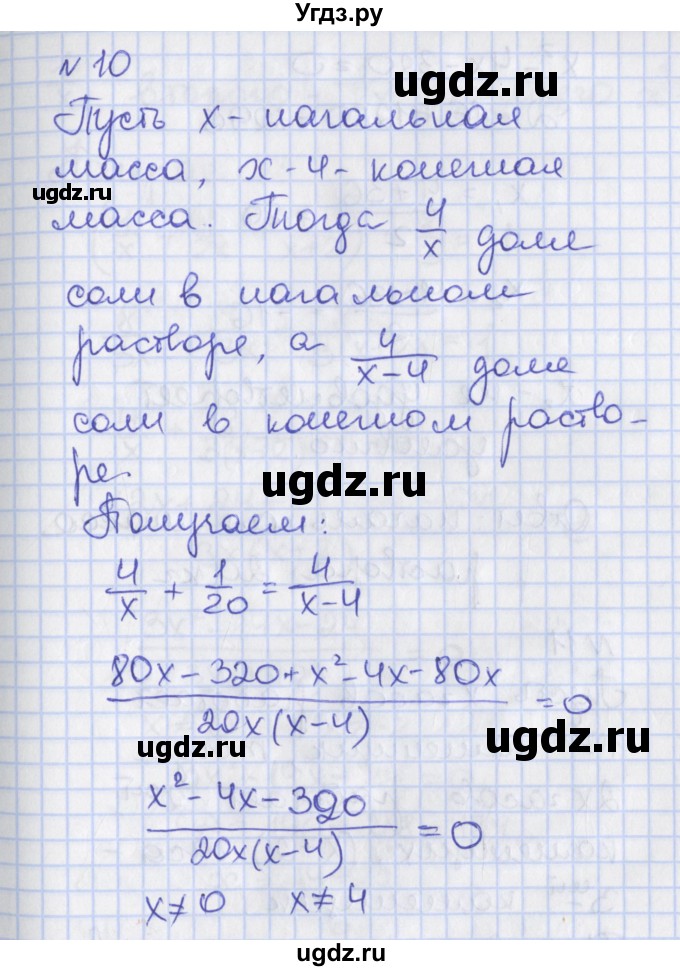 Угдз.ру
№ 10
ugdz.ru
Пусть x - начальная
масса, x - 4 - конечная
ugdz.ru
масса. Тогда 4/x доля
соли в начальном
растворе, а 4/(x-4) доля
соли в конечном раство-
ре.
ugdz.ru
Получаем:
4/x + 1/20 = 4/(x-4)
(80x - 320 + x² - 4x - 80x)/(20x(x-4)) = 0
ugdz.ru
ugdz.ru
(x² - 4x - 320)/(20x(x-4)) = 0
x ≠ 0 x ≠ 4
ugdz.ru